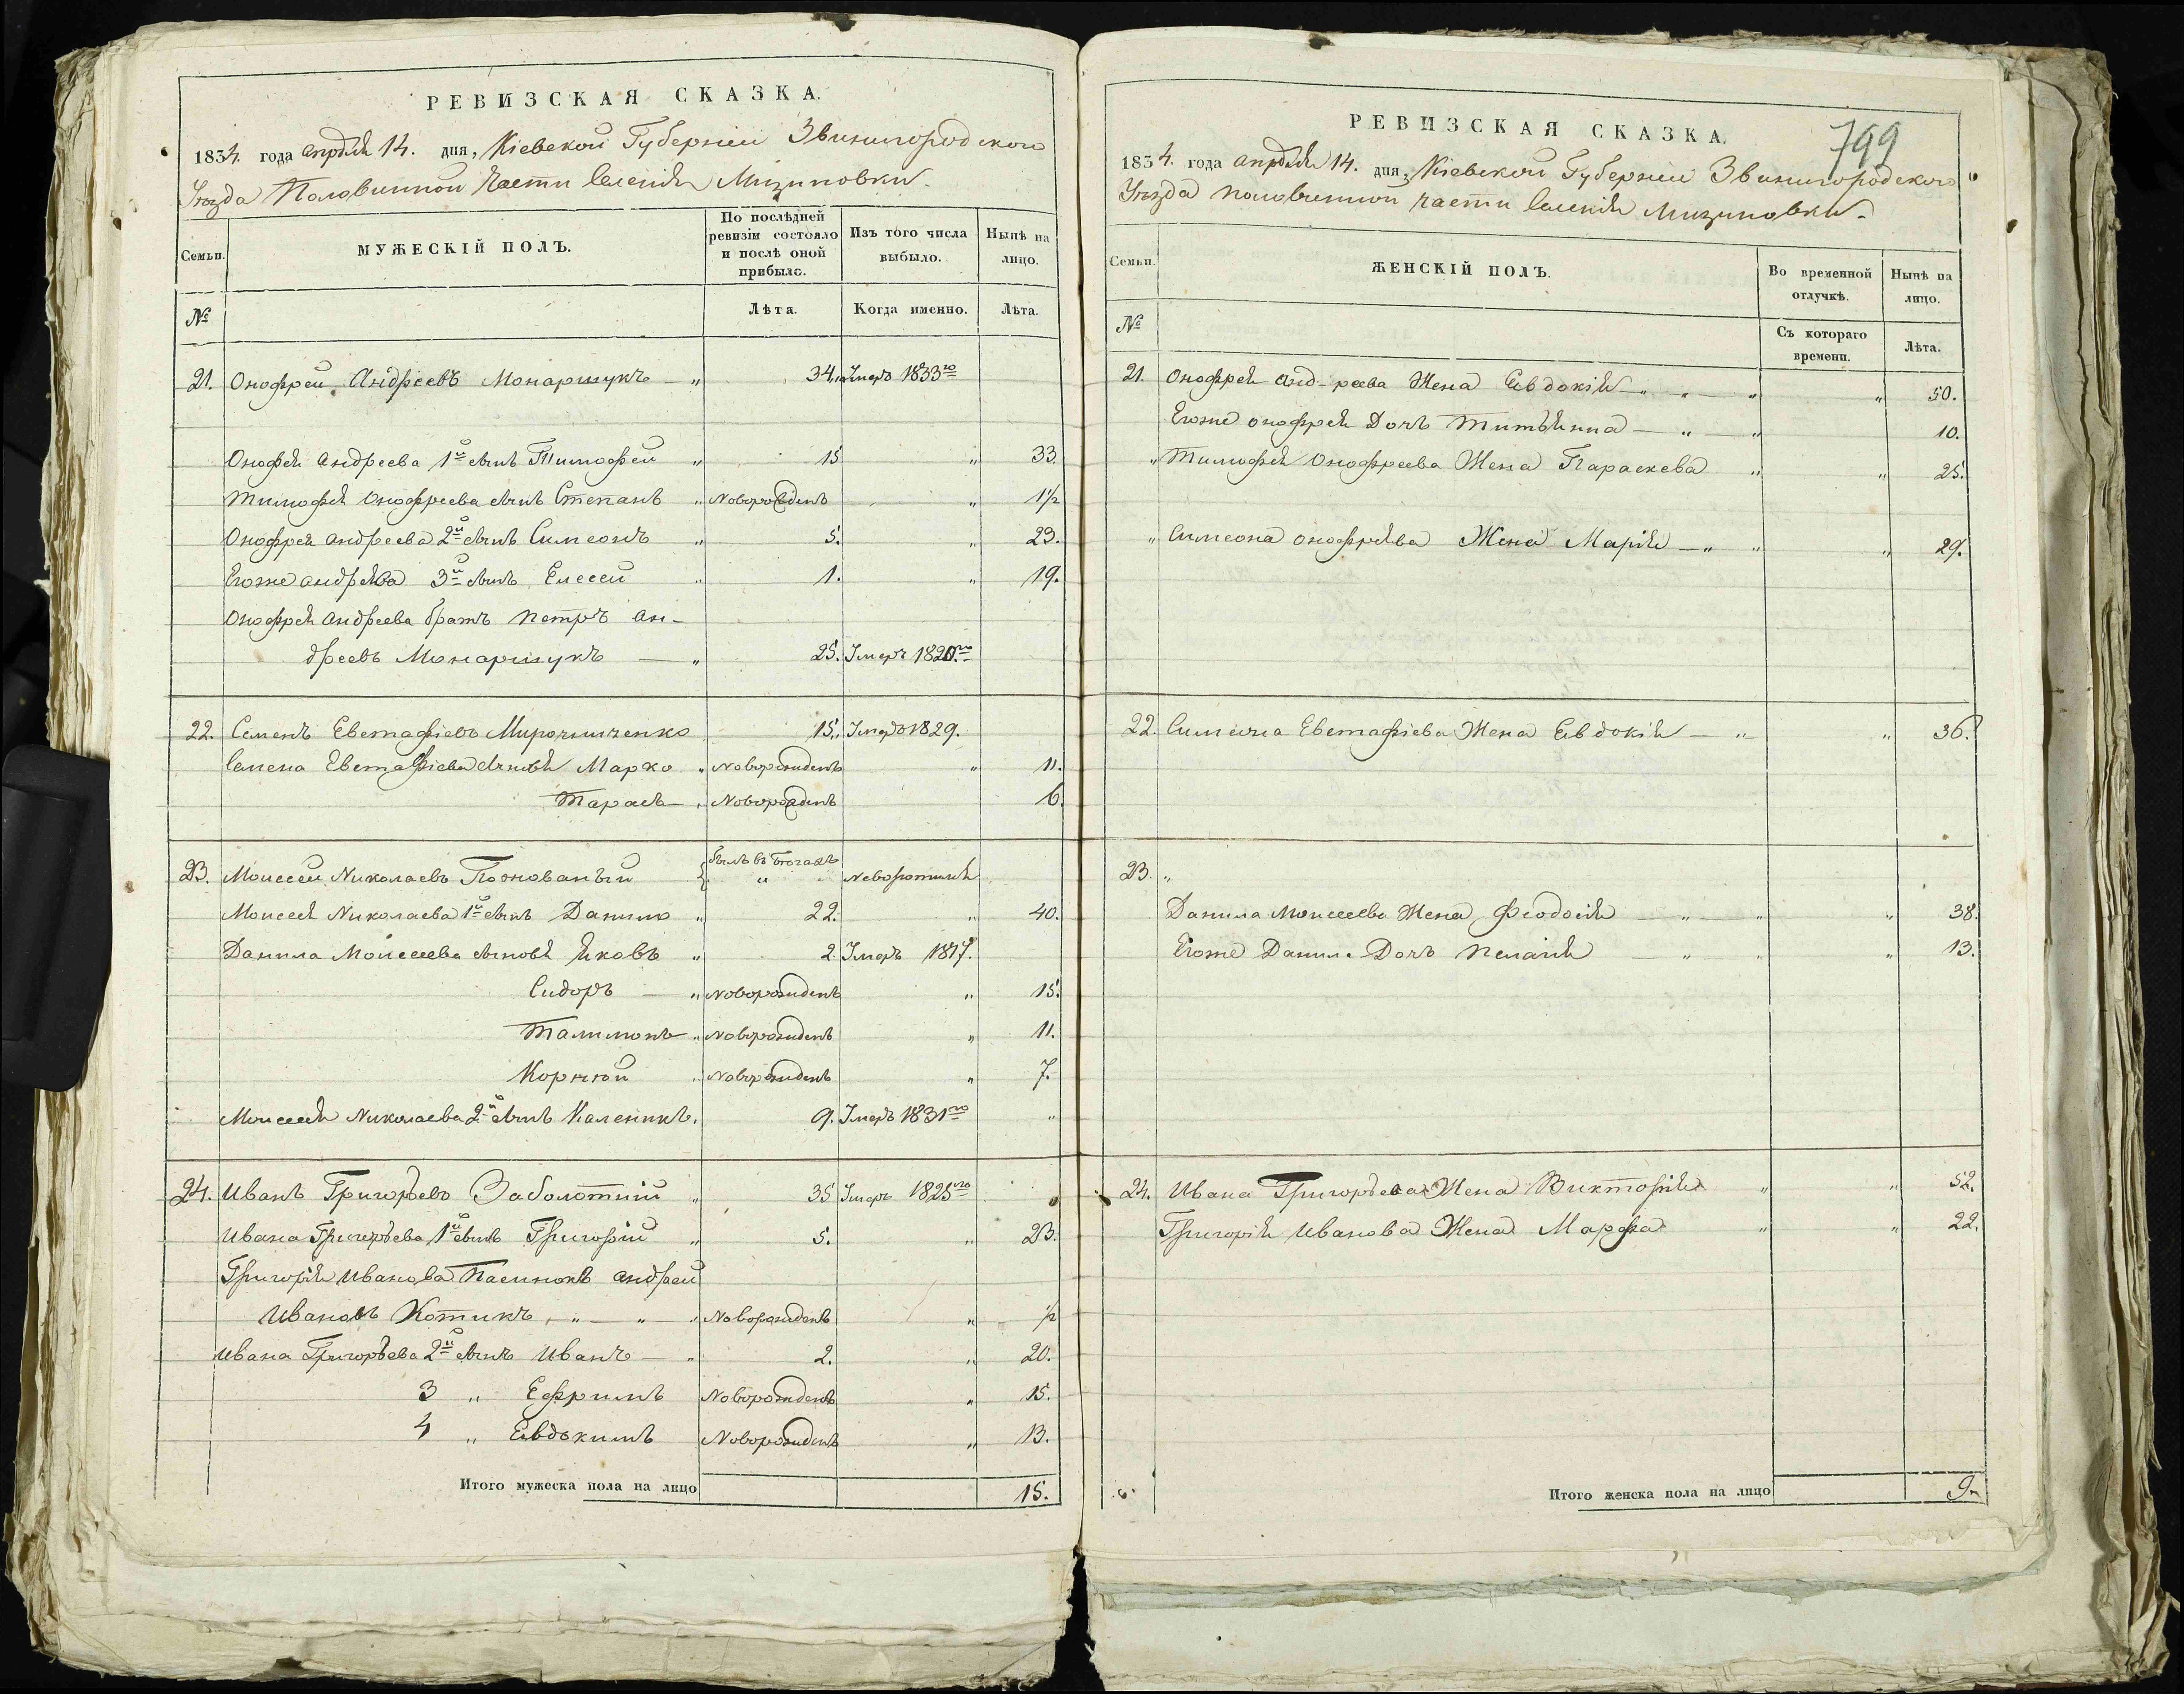 РЕВИЗСКАЯ СКАЗКА.
1834. года апрѣля 14. дня, Кіевской Губерніи Звинигородского
Уѣзда Половинной части Селенія Мизиновки.
Семьи.
МУЖЕСКІЙ ПОЛЪ.
По послѣдней ревизіи состояло и послѣ оной прибыло.
Изъ того числа выбыло.
Нынѣ на лицо.
№
Лѣта.
Когда именно.
Лѣта.
21. Онофрей Андреевъ Монаршукъ — „ 34. Умеръ 1833го
Онофрея Андреева 1й сынъ Тимофей „ 15 „ 33.
Тимофея Онофреева сынъ Степанъ „ Новорожденъ „ 1½
Онофрея Андреева 2й сынъ Симеонъ „ 5. „ 23.
Егоже Андреева 3й сынъ Елесей „ 1. „ 19.
Онофрея Андреева братъ Петръ Ан-
дреевъ Монаршукъ — „ 25. Умеръ 1820.го
22. Семенъ Евстафіевъ Мирошниченко 15. Умеръ 1829.
Семена Евстафіева сыновья Марко „ Новорожденъ „ 11.
Тарасъ — „ Новорожденъ 6.
23. Моисей Николаевъ Былъ въ бѣгахъ „ Невозвратился
Моисея Николаева 1й сынъ Данило „ 22. „ 40.
Данила Моисеева сыновья Яковъ „ 2. Умеръ 1817.
Сидоръ — „ Новорожденъ „ 15.
Талимонъ „ Новорожденъ „ 11.
Корнюй „ Новорожденъ „ 7.
Моисея Николаева 2й сынъ Каленикъ. 9. Умеръ 1831го „
24. Иванъ Григорьевъ Заболотній „ 35 Умеръ 1825го „
Ивана Григорьева 1й сынъ Григорій „ 5. „ 23.
Григорія Иванова Пасинокъ Андрей
Ивановъ Котикъ, „ — „ — „ Новорожденъ „ ½
Ивана Григорьева 2й сынъ Иванъ — „ 2. „ 20.
3 „ Ефримъ Новорожденъ „ 15.
4 „ Евдокимъ Новорожденъ „ 13.
Итого мужеска пола на лицо 15.
799
РЕВИЗСКАЯ СКАЗКА.
1834. года апрѣля 14. дня, Кіевской Губерніи Звинигородского
Уѣзда половинной части Селенія Мизиновки.
Семьи.
ЖЕНСКІЙ ПОЛЪ.
Во временной отлучкѣ.
Нынѣ на лицо.
№
Съ котораго времени.
Лѣта.
21. Онофрея Анд-реева Жена Евдокія — „ „ — „ „ 50.
Егоже Онофрея Дочь — „ — „ 10.
„ Тимофея Онофреева Жена Параскева „ „ 25.
„ Симеона Онофреева Жена Марія — „ „ „ 29.
22. Симеона Евстафіева Жена Евдокія — „ „ 36.
23. „
Данила Моисеева Жена Феодосія — „ — „ „ 38.
Егоже Данила Дочь Пелагія — „ „ „ 13.
24. Ивана Григорьева Жена Викторія „ „ 52.
Григорія Иванова Жена Марфа „ „ 22.
Итого женска пола на лицо 9.